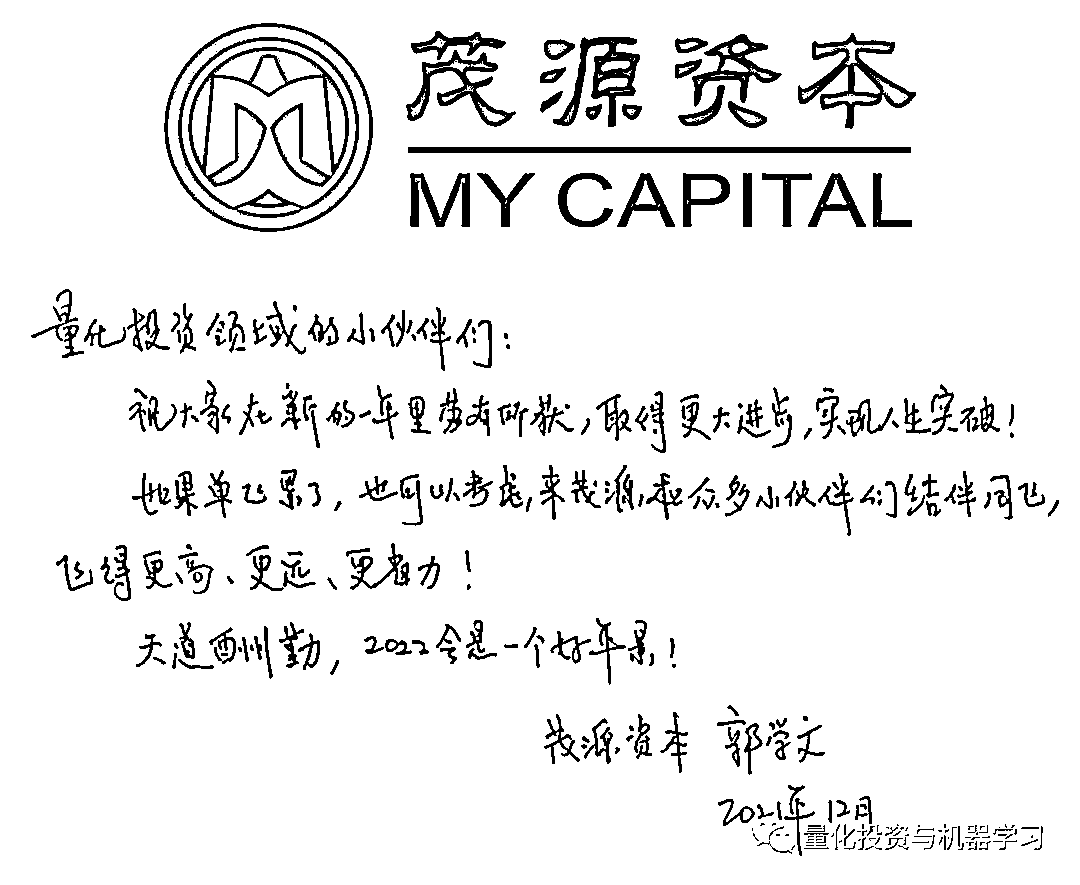 茂源资本
MY CAPITAL
量化投资领域的小伙伴们：
祝大家在新的一年里劳有所获，取得更大进步，实现人生突破！
如果单飞累了，也可以考虑，来茂源，和众多小伙伴们结伴同飞，
飞得更高、更远、更省力！
天道酬勤，2022会是一个好年景！
茂源资本 郭学文
2021年12月
量化投资与机器学习